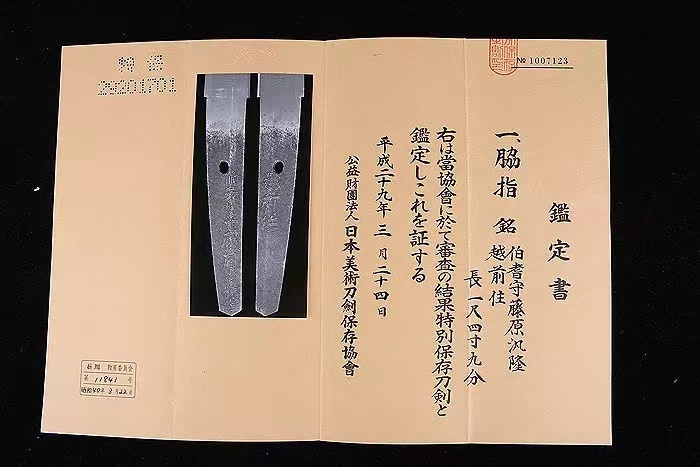 № 1007123
鑑定書
一、脇指 銘 伯耆守藤原汎隆
越前住
長一尺四寸九分
右は當協會に於て審査の結果特別保存刀劍と
鑑定しこれを証する
平成二十九年三月二十四日
公益財團法人日本美術刀劍保存協會
29201701
教育委員会
第 11841 号
昭和40年3月22日